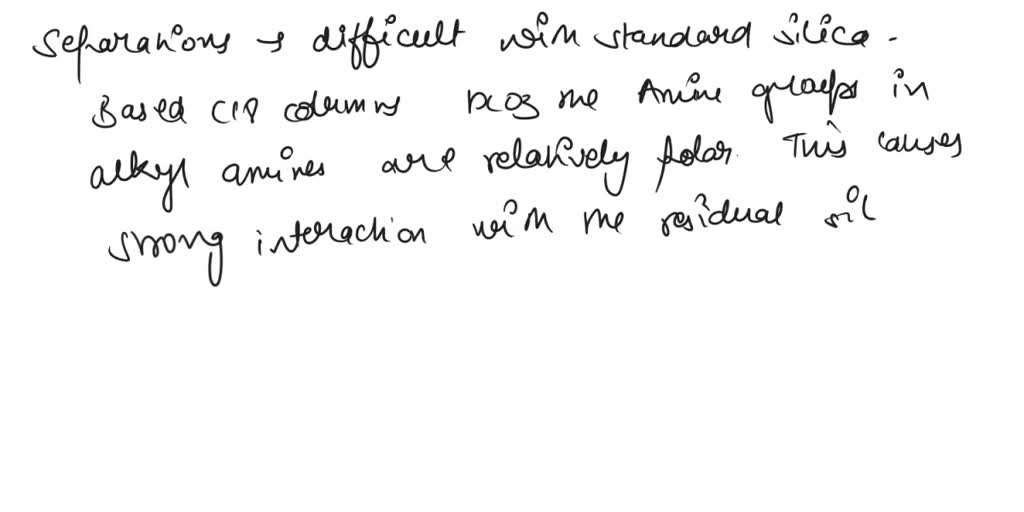 Separations → difficult with standard silica -
Based C18 columns bcoz the Amine groups in
alkyl amines are relatively polar. This causes
strong interaction with the residual sil